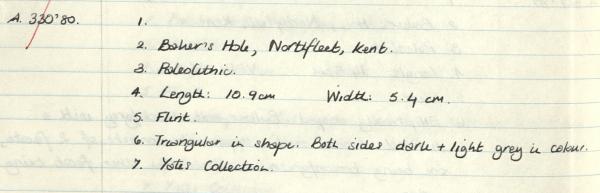 A. 330'80.
1.
2. Baker's Hole, Northfleet, Kent.
3. Paleolithic.
4. Length: 10.9cm Width: 5.4 cm.
5. Flint.
6. Triangular in shape. Both sides dark + light grey in colour.
7. Yates Collection.